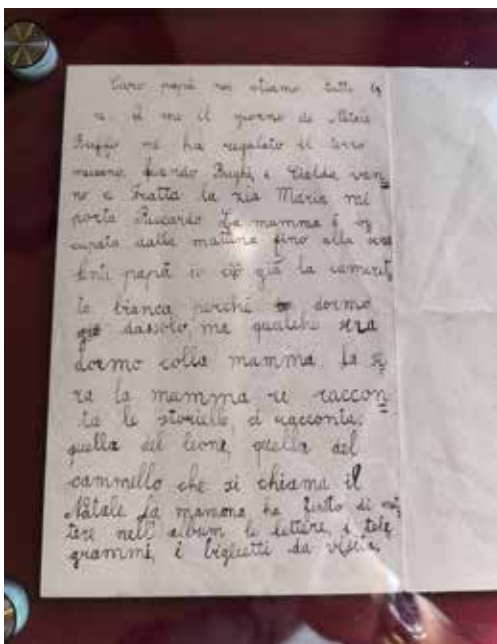 Caro papà noi stiamo tutti be
ne il giorno di Natale
mi ha regalato il treno
meccano, quando Bughi e Gelda van
no a Fratta la zia Maria mi
porta Riccardo La mamma è oc
cupata dalla mattina fino alla sera
Senti papà io ciò già la cameret
ta bianca perchè dormo
dassolo ma qualche sera
dormo colla mamma. La se
ra la mamma ci raccon
ta le storielle, ci racconta,
quella del leone, quella del
cammello che si chiama il
Natale La mamma ha finito di met
tere nell'album le lettere, i tele
grammi, i biglietti da visita,